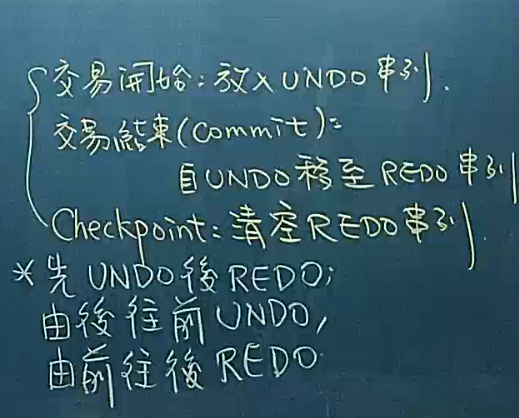 交易開始：放入UNDO串列.
交易結束(commit)：
自UNDO移至REDO串列
Checkpoint：清空REDO串列.
*先UNDO後REDO;
由後往前UNDO,
由前往後REDO.